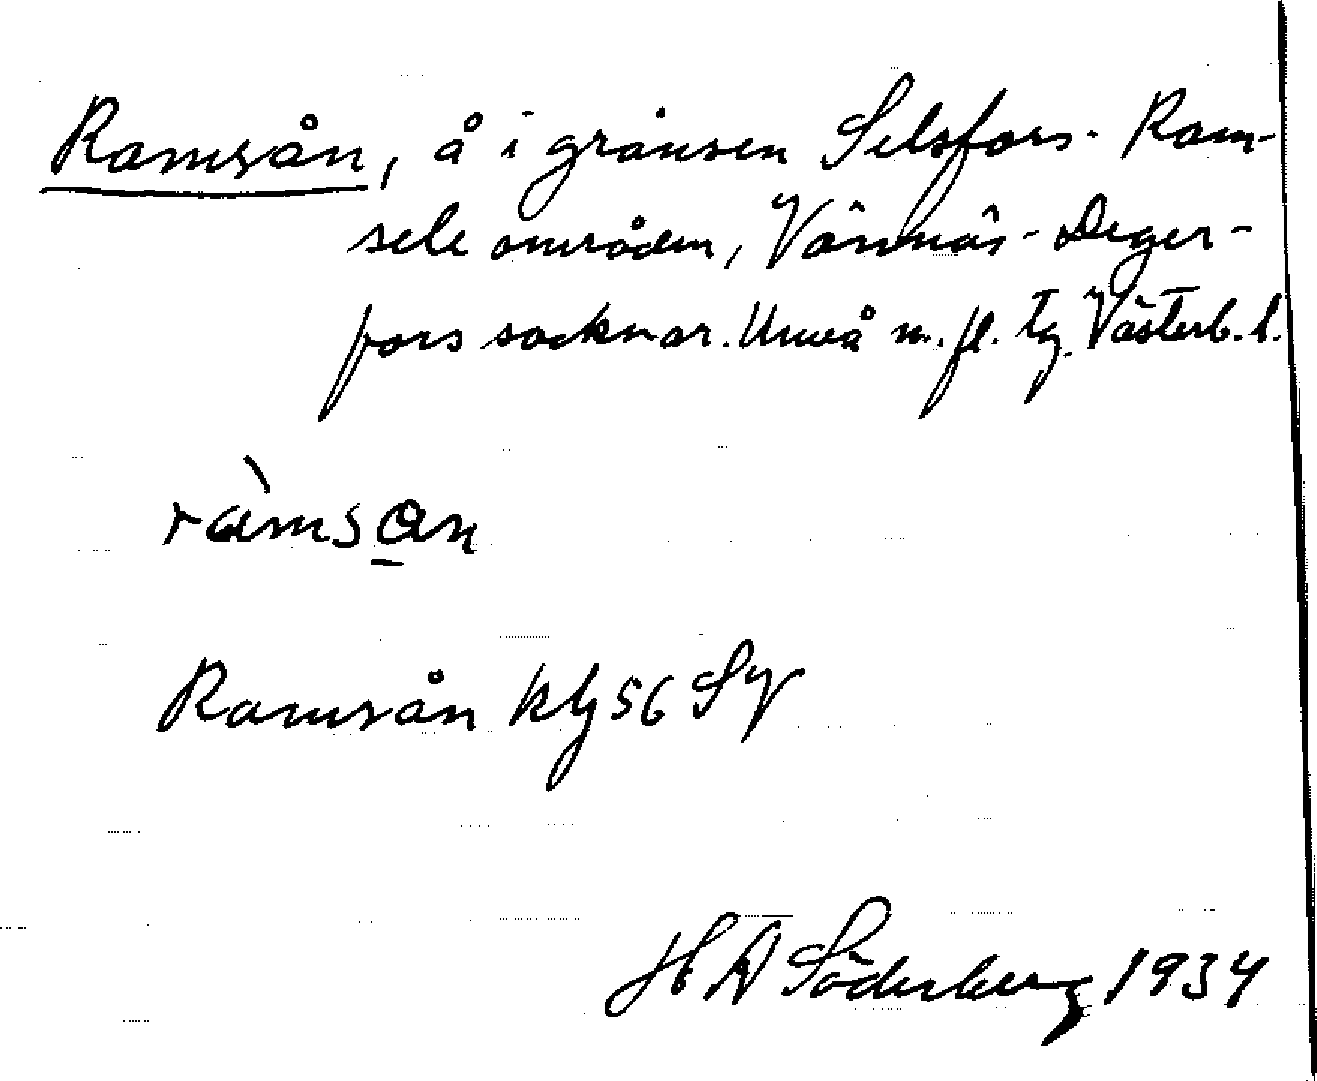 Ramsån, å i gränsen Selsfors - Ram-
sele områden, Vännäs - Deger-
fors socknar. Umeå m. fl. tg. Västerb. l.
ràmsɑn
Ramsån kbl 56 SV
H A Söderberg 1934